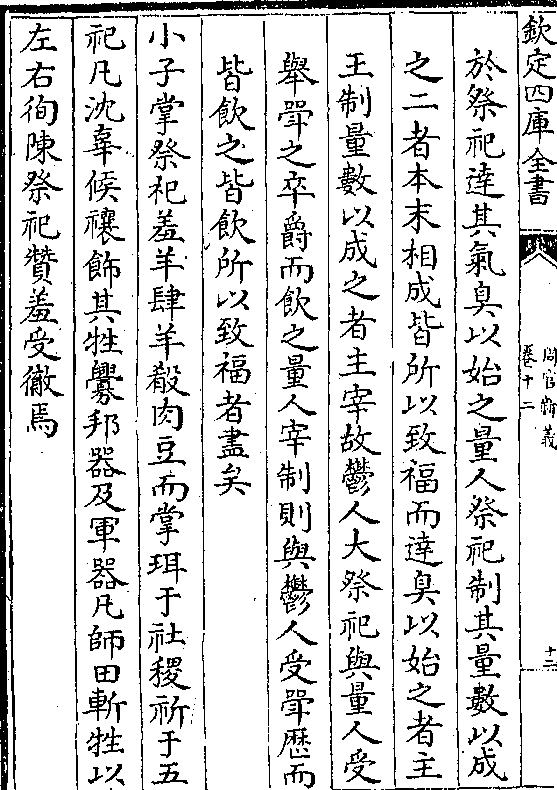 欽定四庫全書
周官新義
卷十二
十三
於祭祀達其氣臭以始之量人祭祀制其量數以成
之二者本末相成皆所以致福而達臭以始之者主
王制量數以成之者主宰故鬱人大祭祀與量人受
舉斝之卒爵而飲之量人宰制則與鬱人受斝歴而
皆飲之皆飲所以致福者盡矣
小子掌祭祀羞羊肆羊殽肉豆而掌珥于社稷祈于五
祀凡沈辜候禳飾其牲釁邦器及軍器凡師田斬牲以
左右徇陳祭祀贊羞受徹焉